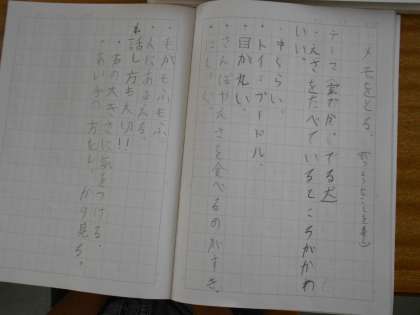 メモをとる。
テーマ(家でかっている犬)
・えさをたべているところがかわ
いい。
・中くらい。
・トイ・プードル。
・目が丸い。
・さんぽやえさを食べるのがすき。
・毛がもふもふ
・人にあまえる。
話し方も大切!!
・声の大きさに気をつける。
・あい手の方をしっかり見る。